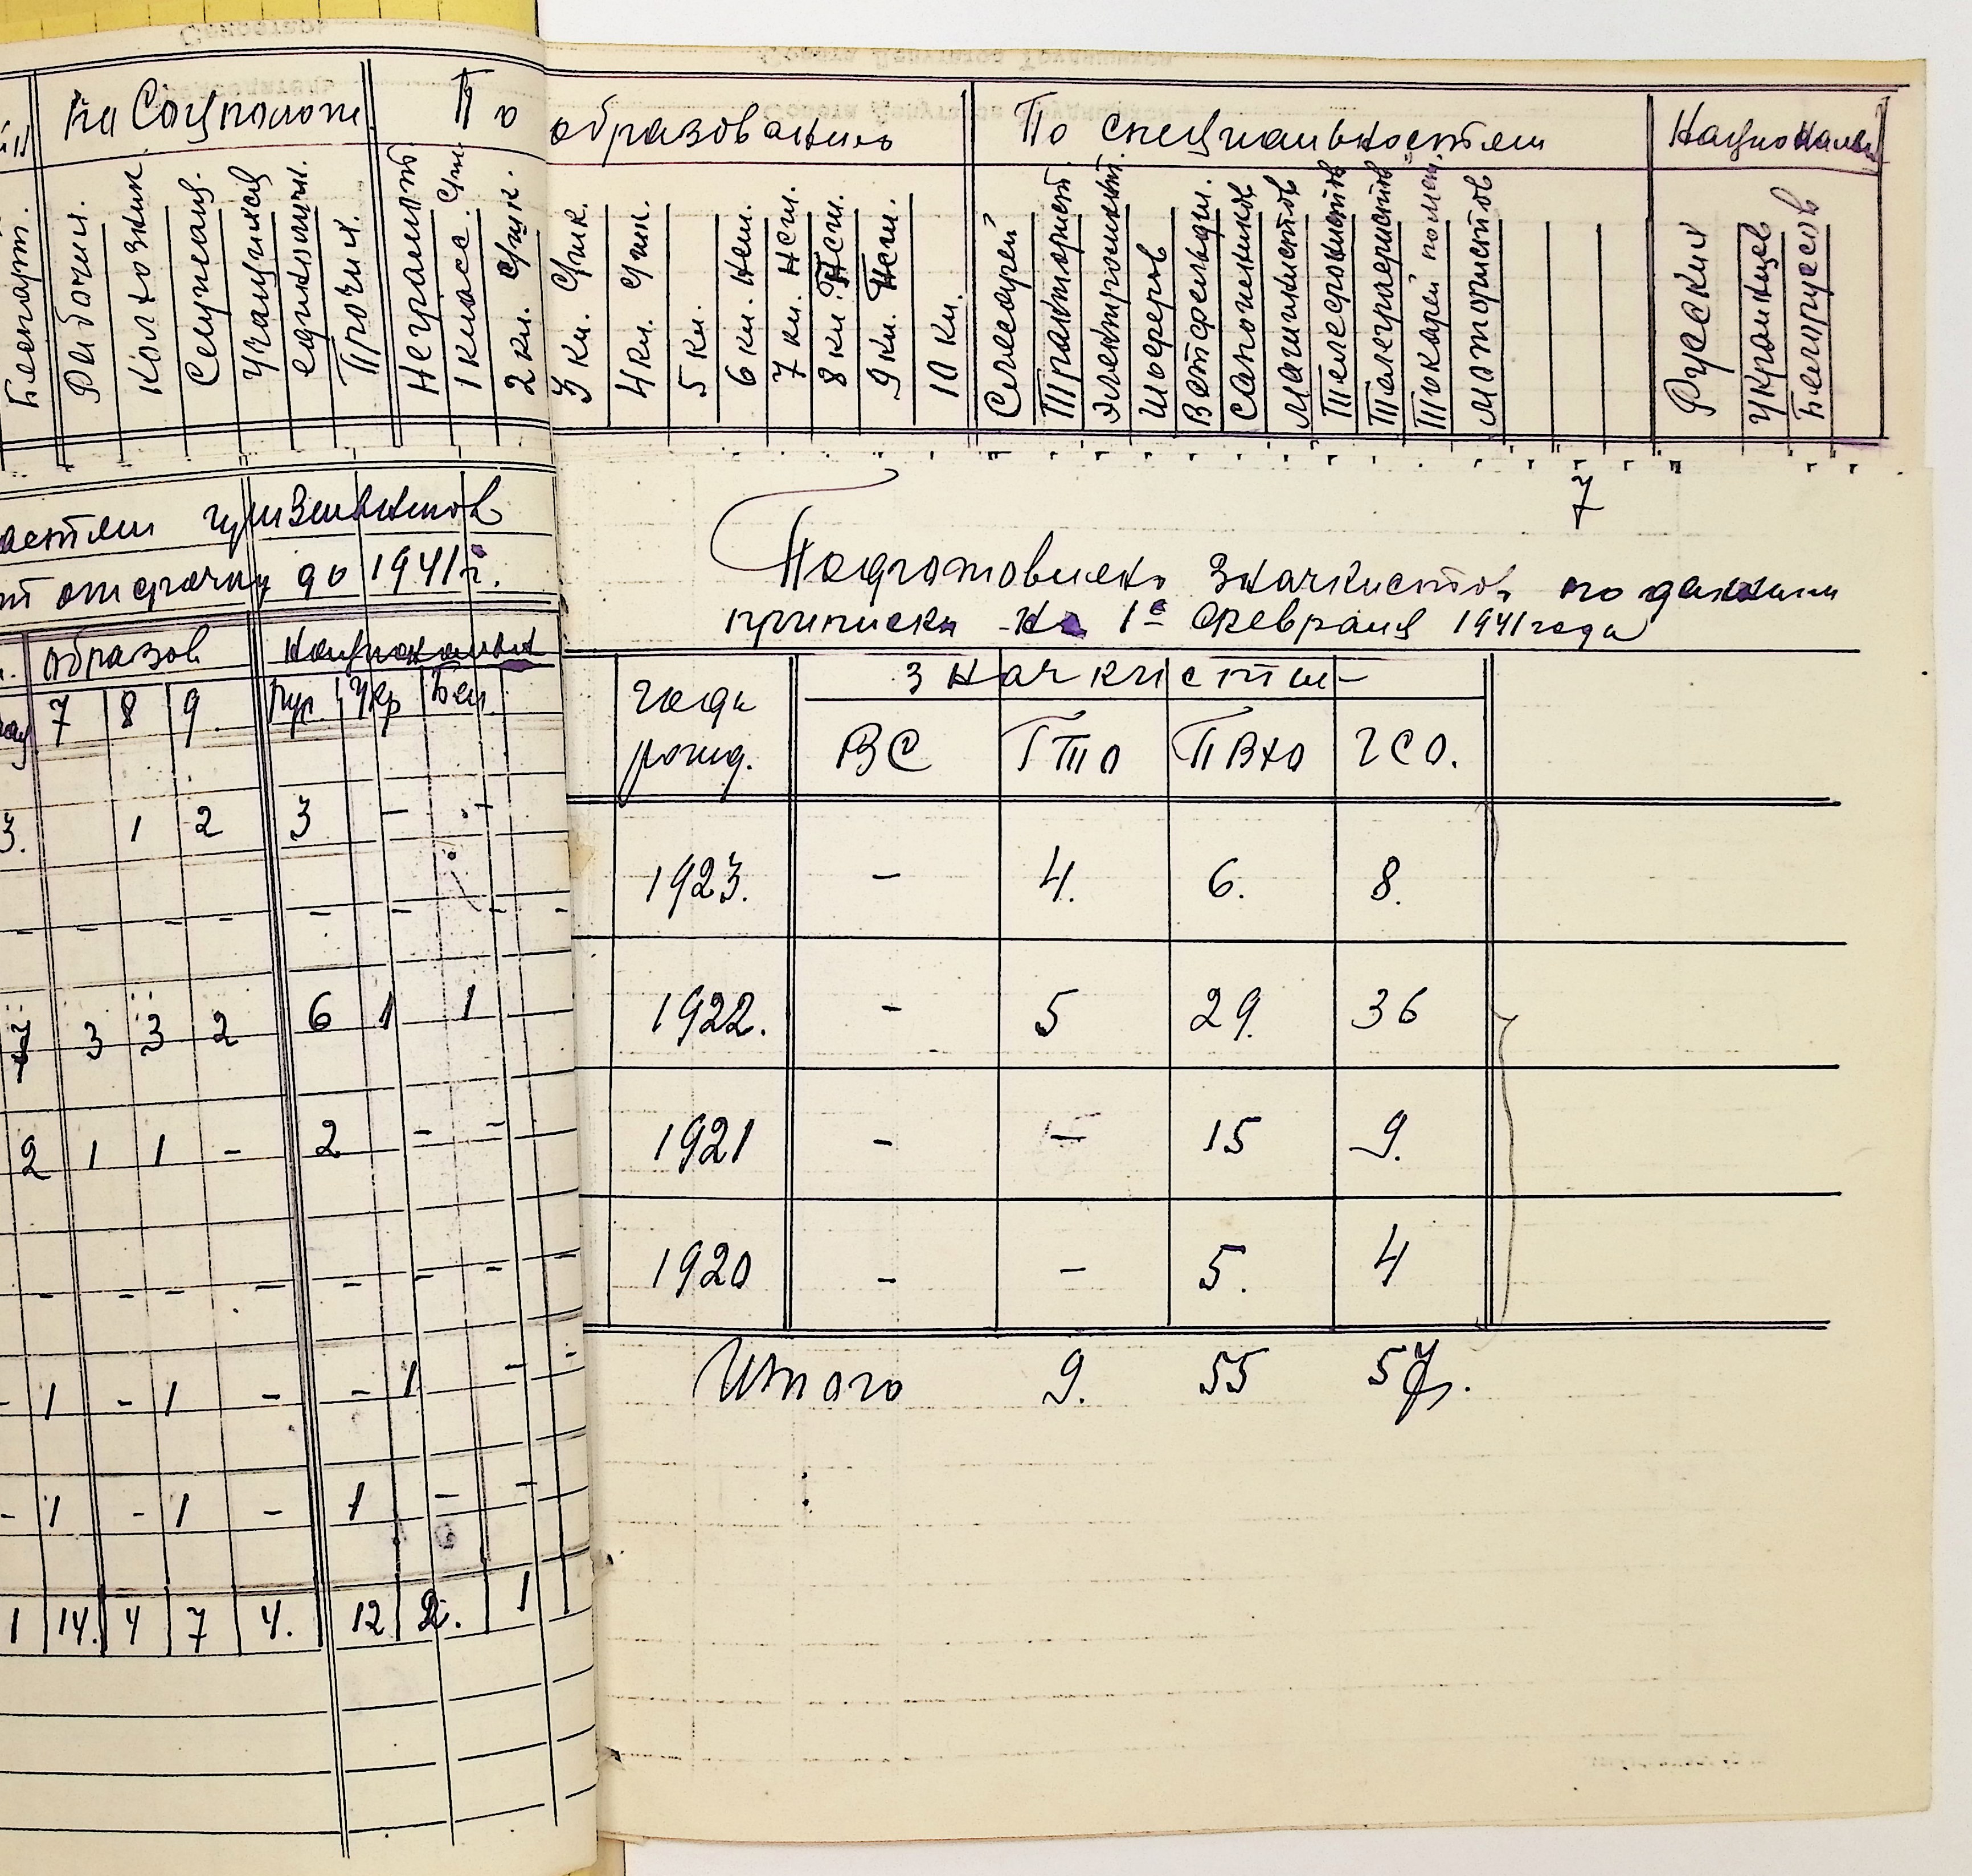 на Соцполож По образованию По специальностям Национальн
Беспарт.
Рабочих.
Колхозник
Служащ.
Учащихся
единоличн.
Прочих.
Неграмотн.
1 класс. с/шк.
2 кл. с/шк.
3 кл. с/шк.
4 кл. с/шк.
5 кл.
6 кл. Нсш.
7 кл. Нсш.
8 кл. Псш.
9 кл. Псш.
10 кл.
Слесарей
Трактористов
Электромонт.
Шоферов
Ветфельдш.
Сапожников
Машинистов
Телефонистов
Телеграфистов
Токарей по мет.
Мотористов
Русских
Украинцев
Белоруссов
7
призывников
отсрочку до 1941 г.
образов национальн
7 8 9. Рус. Укр Бел.
3. 1 2 3 - -
- - - - - - - -
7 3 3 2 6 1 1
2 1 1 - 2 - -
- - - - - - - -
- 1 - 1 - - 1 - -
- 1 - 1 - 1 - -
1 14. 4 7 4. 12 2. 1
Подготовлено значкистов по данным
приписки на 1е февраля 1941 года
года рожд. значкисты
ВС ГТО ПВХО ГСО.
1923. - 4. 6. 8.
1922. - 5 29. 36
1921 - - 15 9.
1920 - - 5. 4
Итого 9. 55 57.